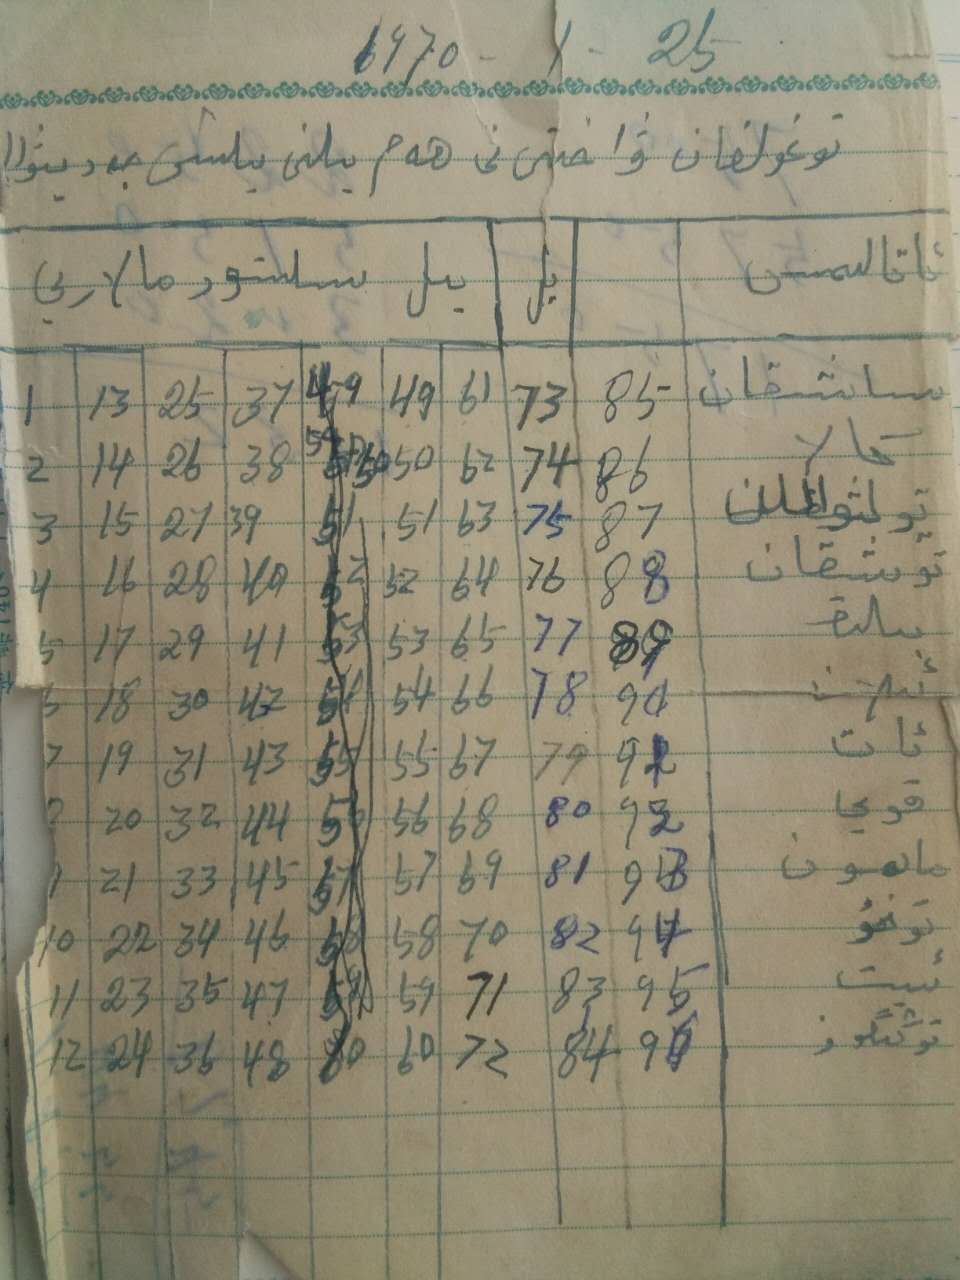 1970 - 1 - 25
تۇغۇلغان ۋاختى نى ھەم يىلنى يىلىشى جەدىۋىلا
ئاتالىمىسى يىل يىل سىلىشتۇرمىلارى
1 13 25 37 49 61 73 85 ساشقان
2 14 26 38 50 62 74 86 كالا
3 15 27 39 51 51 63 75 87
4 16 28 40 52 52 64 76 88 توشقان
5 17 29 41 53 53 65 77 89 بىلىق
18 30 42 54 54 66 78 90
19 31 43 55 55 67 79 91 ئات
20 32 44 56 56 68 80 92 قوي
21 33 45 57 57 69 81 93 مايمون
10 22 34 46 58 58 70 82 94 توخۇ
11 23 35 47 59 59 71 83 95 ئىت
12 24 36 48 60 60 72 84 96 توڭگۇز